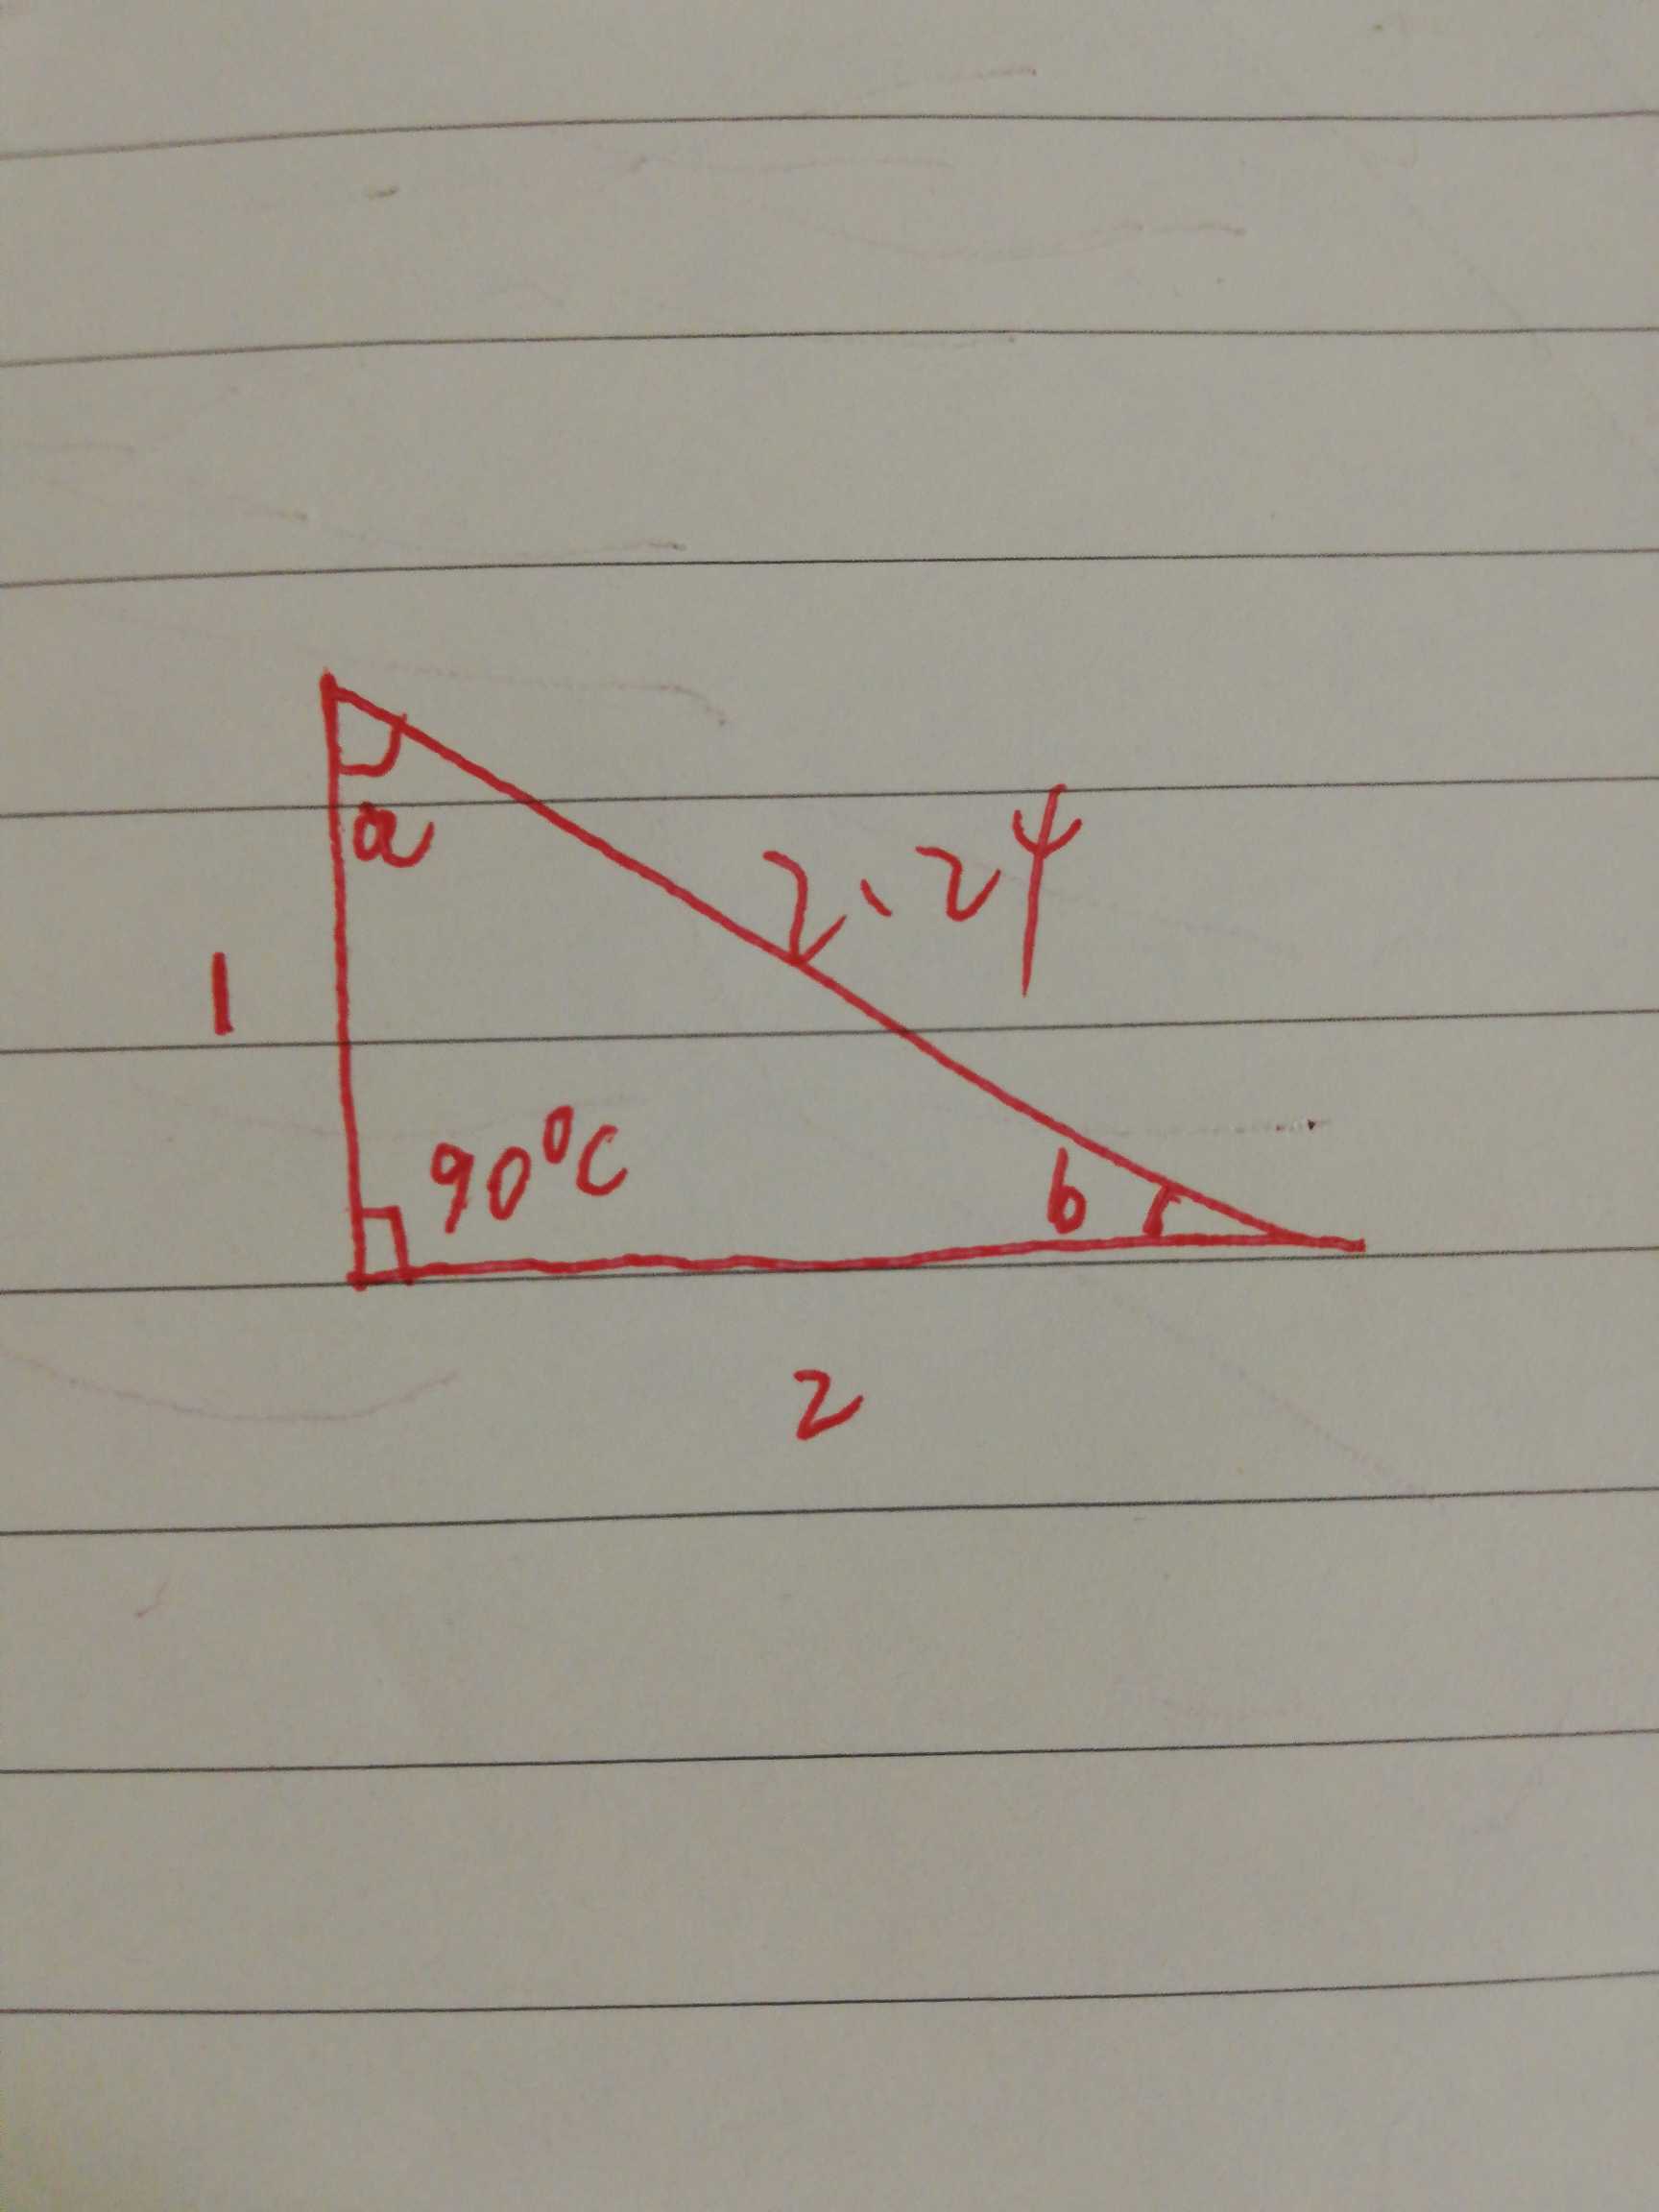 a
2.24
1
90°C
b
2